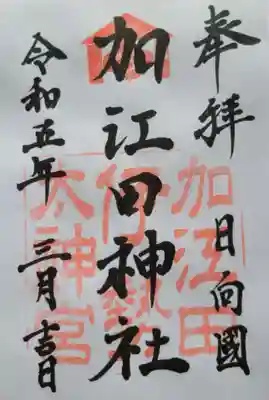 奉拝
日向國
加江田神社
令和五年
三月吉日
加江田
伊勢
太神宮